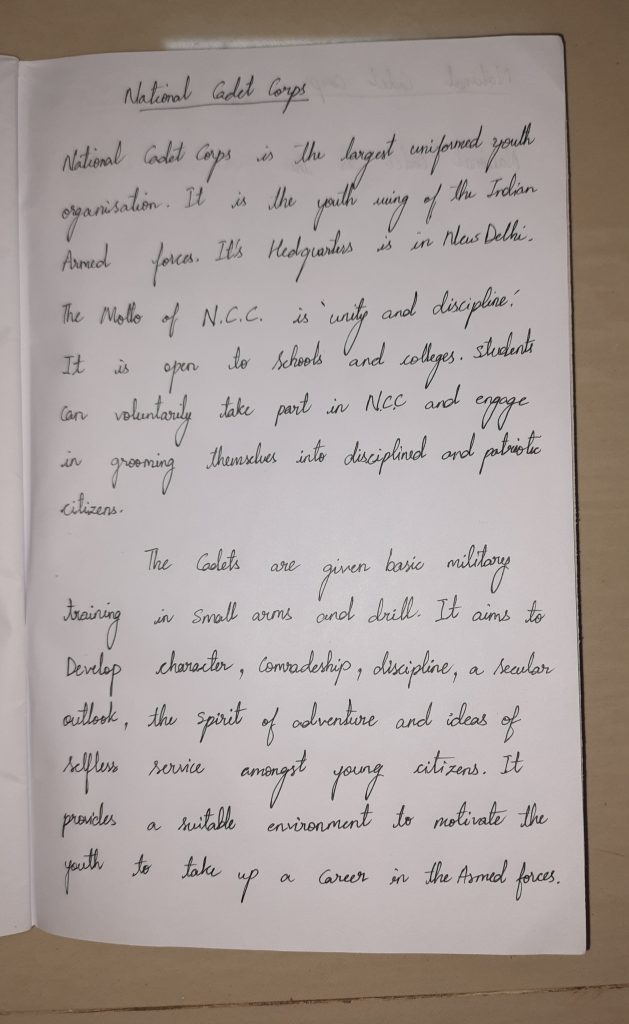 National Cadet Corps
National Cadet Corps is the largest uniformed youth
organisation. It is the youth wing of the Indian
Armed forces. It's Hedquarters is in New Delhi.
The Motto of N.C.C. is 'unity and discipline.'
It is open to schools and colleges. Students
can voluntarily take part in N.C.C and engage
in grooming themselves into disciplined and patriotic
citizens.
The Cadets are given basic military
training in small arms and drill. It aims to
Develop character, Comradeship, discipline, a secular
outlook, the spirit of adventure and ideas of
selfless service amongst young citizens. It
provides a suitable environment to motivate the
youth to take up a career in the Armed forces.